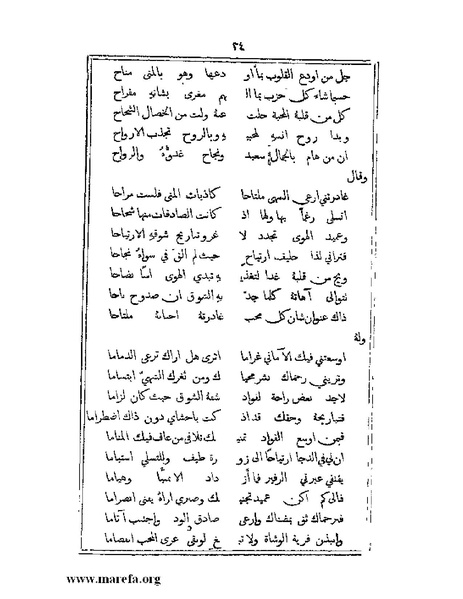 ٣٤
جل من اودع القلوب بما أو دعها وهو بالمنى مناح
حسبما شاء كل حزب بما ال هم مغرى بشانه مفراح
كل من قلبه المحبة حلت عنه ولت من الخصال الشحاح
وبدا روح انسه لمحبيه وبالروح تجذب الارواح
ان من هام بالجمال سعيد ونجاح غدوه والرواح
وقال
غادرتني ارعى السهى ملتاحا كاذبات المنى فلست مراحا
انسلى رغما بها ولها اذ كانت الصادقات منها شحاحا
وعميد الهوى تجدد لا غرو تباريح شوقه الارتياحا
فتراني لذا حليف ارتياح حيث لم الق في سواه نجاحا
ويح من قلبه غدا لتغذيه تبدي الهوى اسا نضاحا
تتوالى آهاته كلما جد به الشوق ان صدوح باحا
ذاك عنوان شان كل محب غادرته احبابه ملتاحا
وله
اوسعتني فيك الأماني غراما اترى هل اراك ترعى الذماما
وتريني رحماك نشر محيا ك ومن ثغرك الشهي ابتساما
لاجد بعض راحة لفواد شفه الشوق حيث كان لزاما
فتباريحه وحقك قد اذ كت باحشاي دون ذاك اضطراما
فمن اوسع الفواد تمنيك تلافى من عاف فيك المناما
ان لي في الدجا ارتياحا الى زو رة طيف وللتسلي استباما
يقتفي عبرتي الزفير فأز داد لا سيا وهياما
فالى كم اكن عميد تجنيك وصبري اراه يعنى انصراما
فبرحماك ثق بمضناك وارعى صادق الود واجتنب آثاما
وانبذن فرية الوشاة ولا تبغ لوثقى عرى المحب انفصاما
www.marefa.org